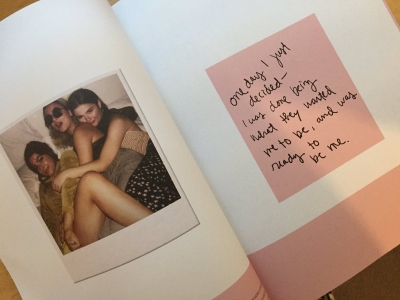 one day I just
decided—
I was done being
what they wanted
me to be, and was
ready to
be me.